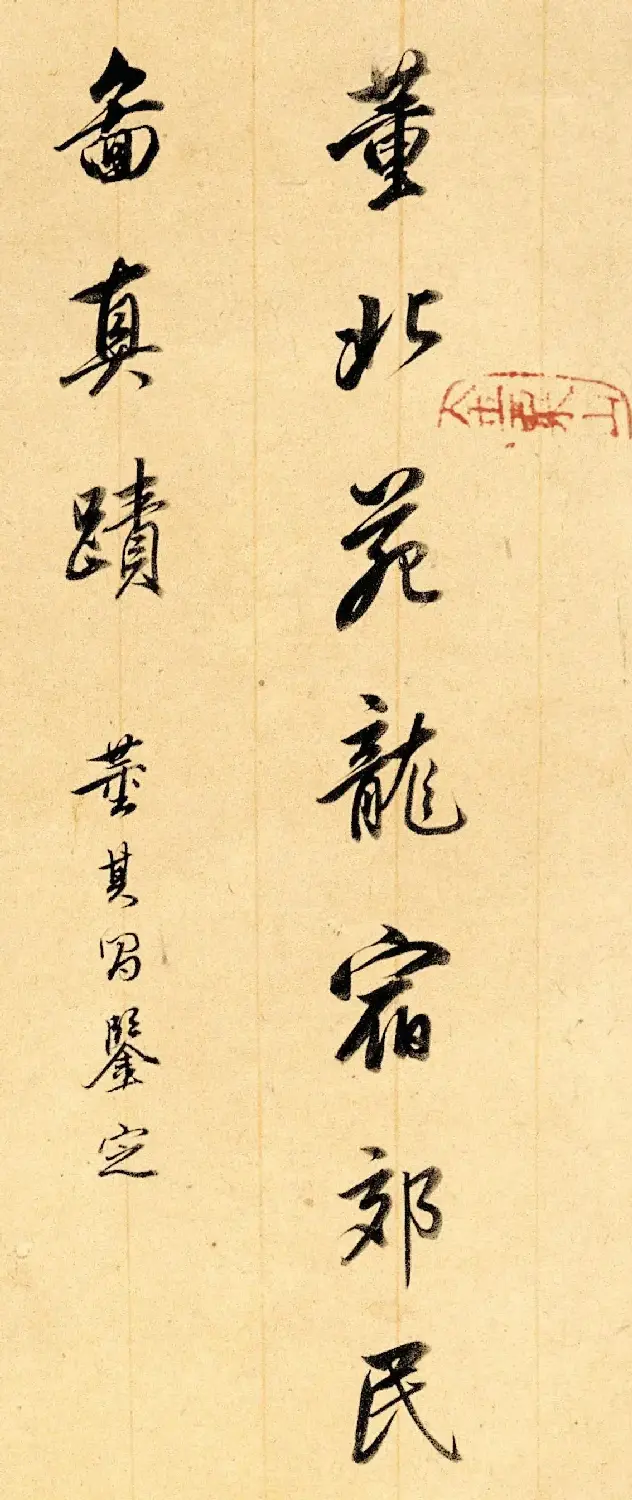 董北苑龍宿郊民
畵真蹟 董其昌鑒定